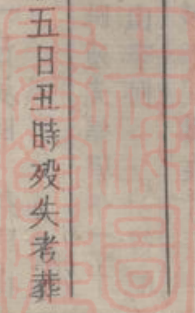 五日丑時殁失考葬